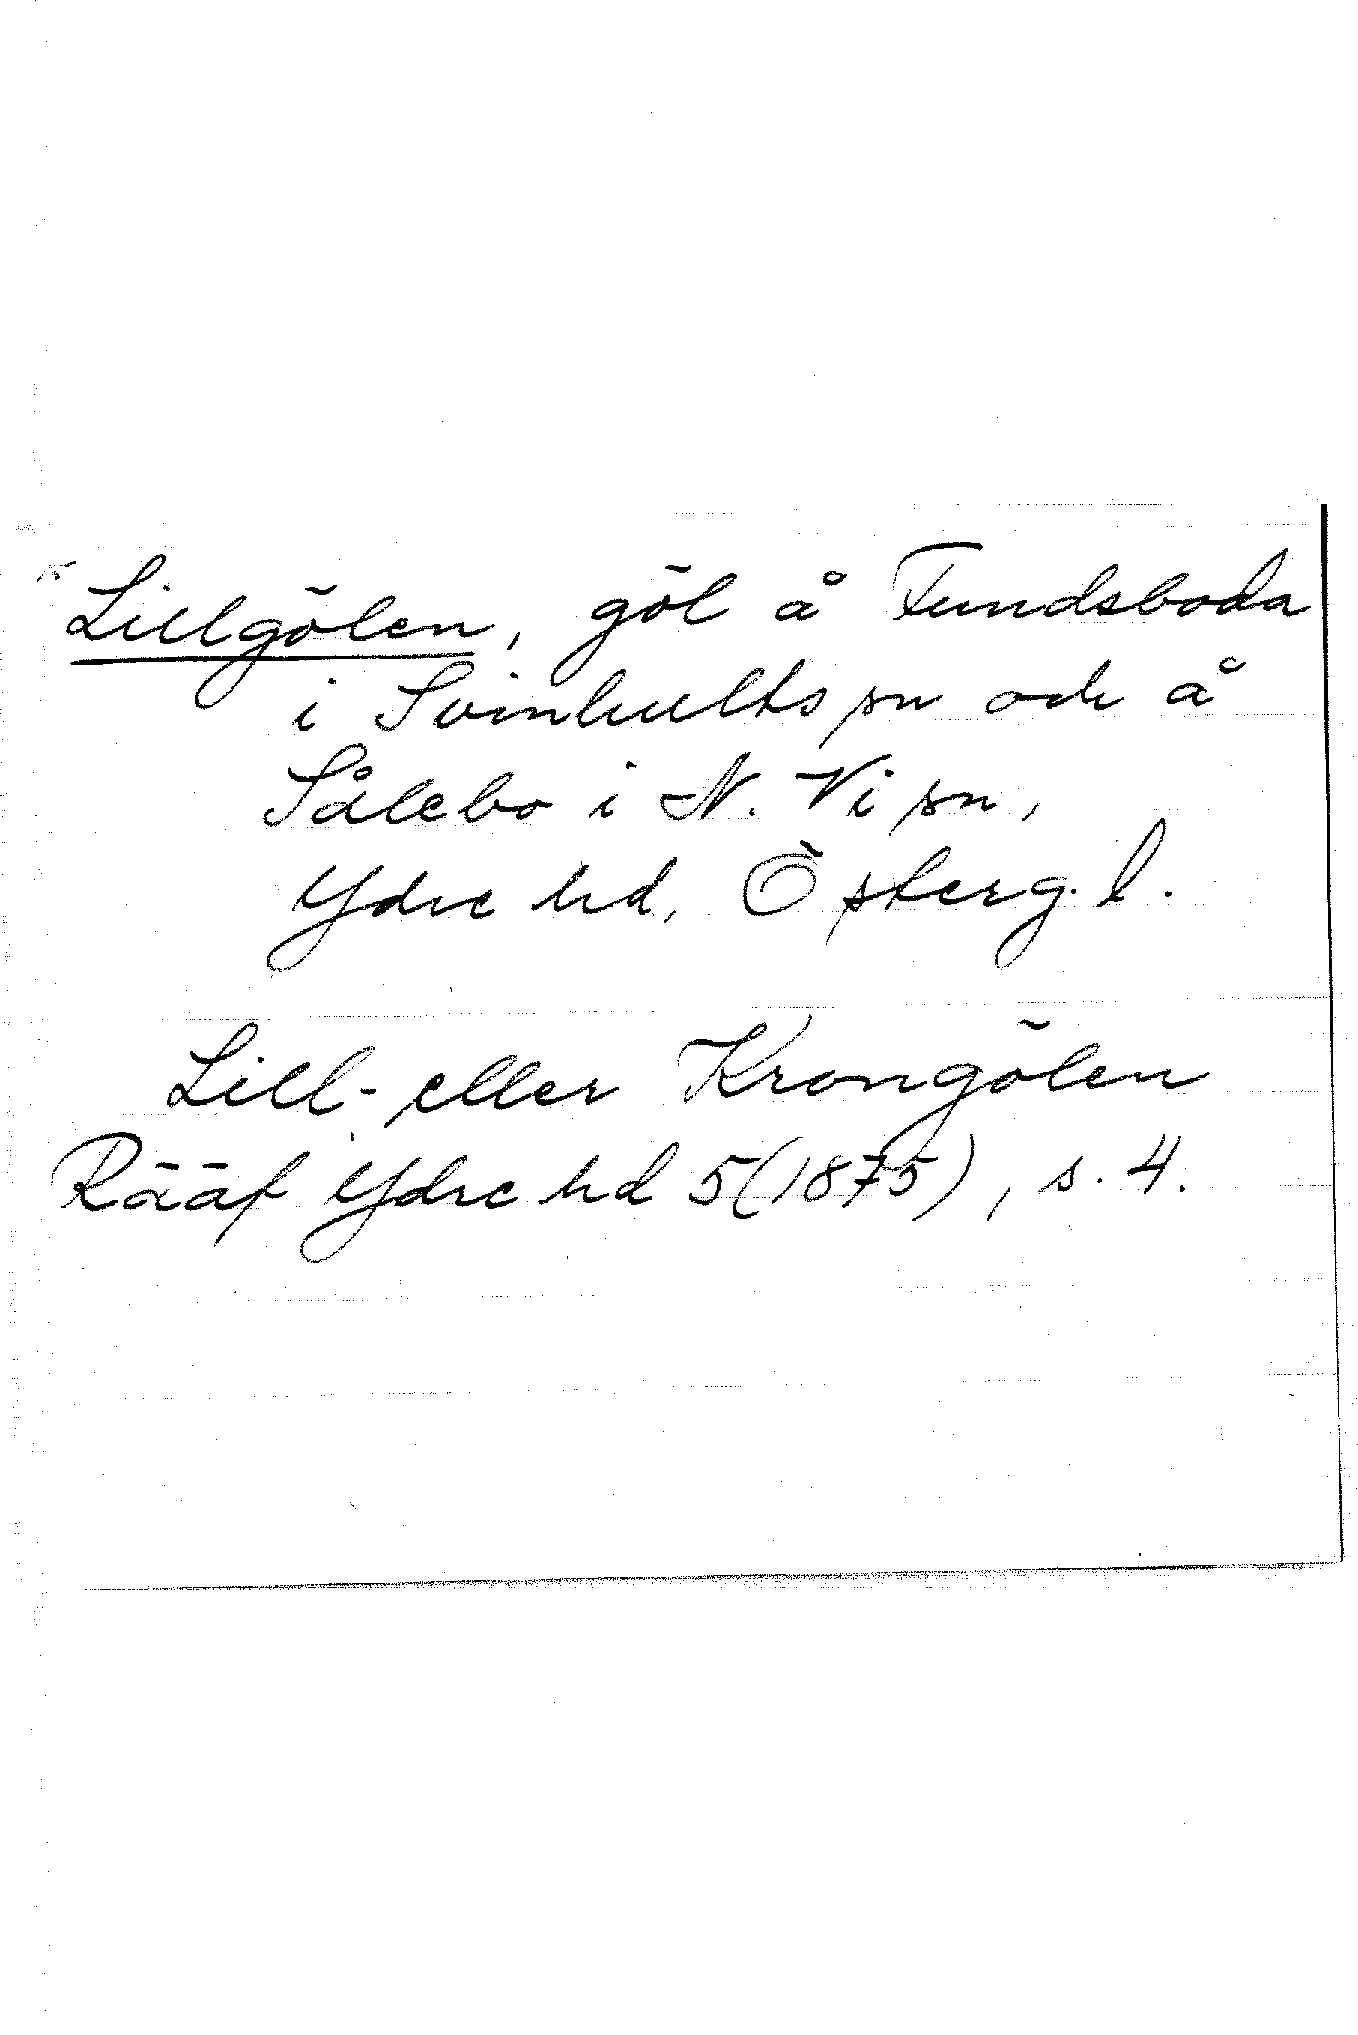 Lillgölen, göl å Fundsboda
i Svinhults sn och å
Sålebo i N. Vi sn,
Ydre hd, Österg. l.
Lill- eller Krongölen
Rääf Ydre hd 5 (1875), s. 4.